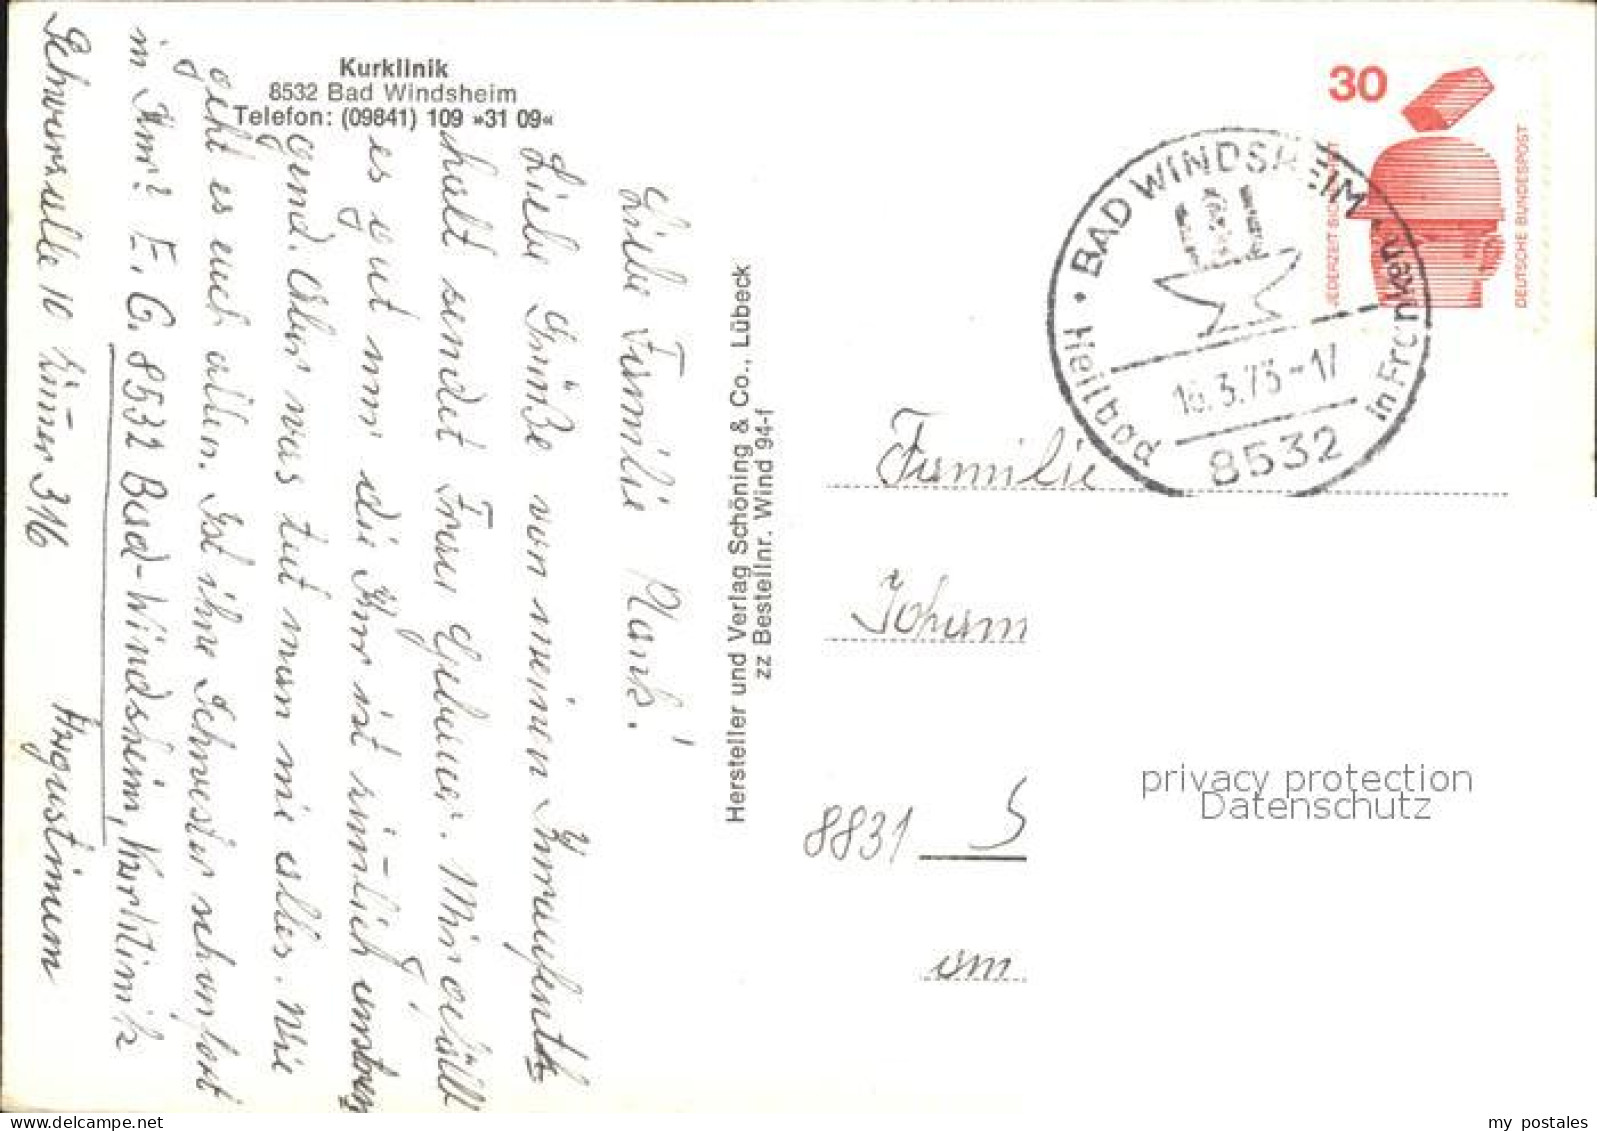 Kurklinik
8532 Bad Windsheim
Telefon: (09841) 109 »31 09«
Liebe Familie
Liebe Grüße von meinen Kuraufent-
halt sendet Frau Gebauer. Mir gefällt
es gut nur die Kur ist zimlich anstren
gend. Aber was tut man nie alles. Wie
geht es euch allen. Ist ihre Schwester schon fort
in Kur? E. G. 8532 Bad-Windsheim, Kurklinik
Schwarzalle 10 Zimmer 316 Augustinum
Hersteller und Verlag Schöning & Co., Lübeck
zz Bestellnr. Wind 94-f
30
JEDERZEIT SICHERHEIT
DEUTSCHE BUNDESPOST
BAD WINDSHEIM
Heilbad in Franken
-17
8532
Familie
Johann
8831 S
am
privacy protection
Datenschutz
my postales